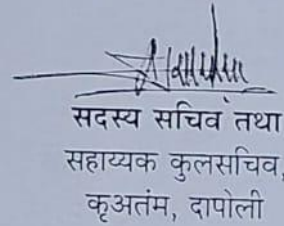 सदस्य सचिव तथा
सहाय्यक कुलसचिव,
कृअतंम, दापोली